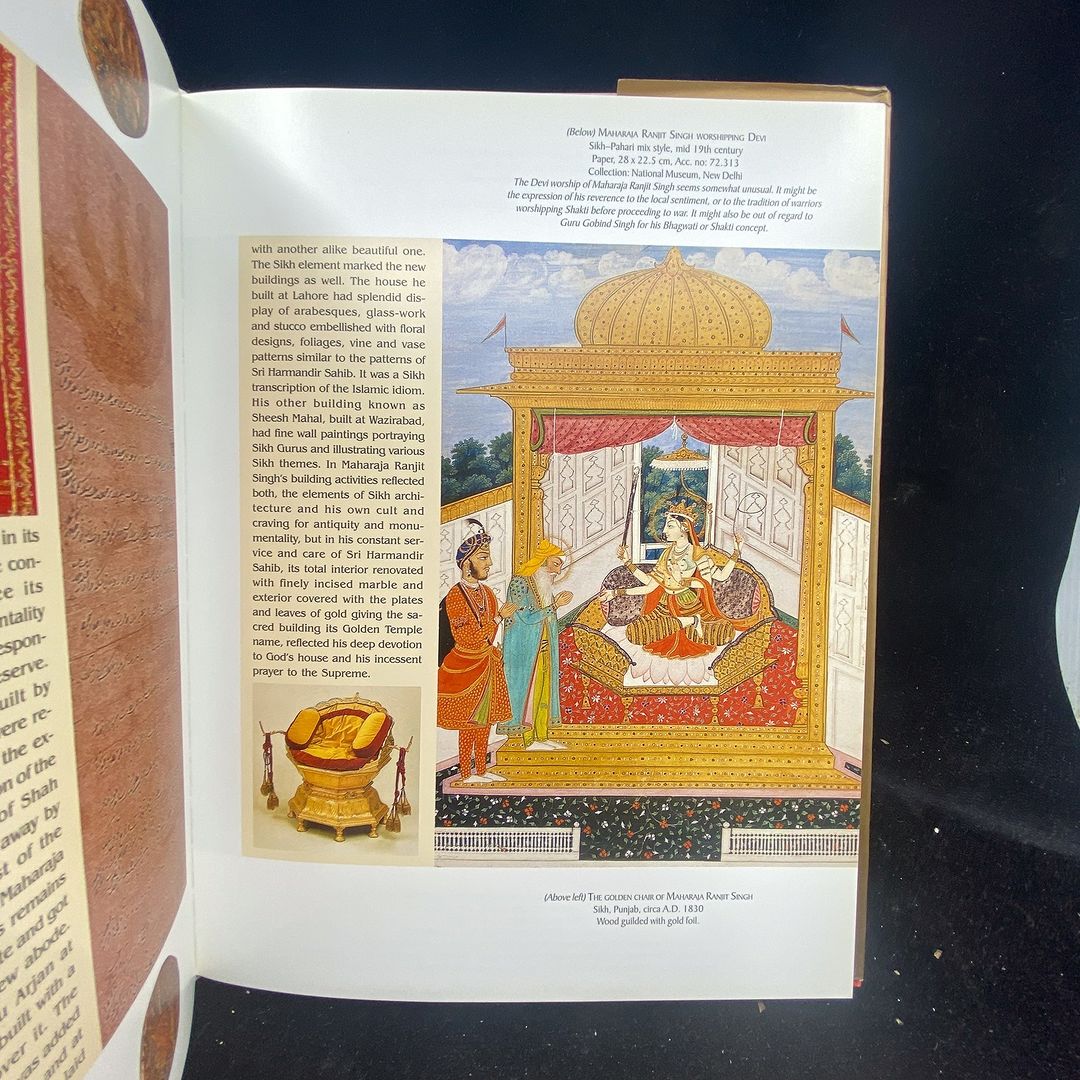 in its
con-
ce its
ntality
espon-
eserve.
uilt by
ere re-
the ex-
on of the
of Shah
away by
st of the
Maharaja
s remains
te and got
ew abode.
u Arjan at
built with a
over it. The
was added
and at
laid
(Below) Maharaja Ranjit Singh worshipping Devi
Sikh–Pahari mix style, mid 19th century
Paper, 28 x 22.5 cm, Acc. no: 72.313
Collection: National Museum, New Delhi
The Devi worship of Maharaja Ranjit Singh seems somewhat unusual. It might be
the expression of his reverence to the local sentiment, or to the tradition of warriors
worshipping Shakti before proceeding to war. It might also be out of regard to
Guru Gobind Singh for his Bhagwati or Shakti concept.
with another alike beautiful one.
The Sikh element marked the new
buildings as well. The house he
built at Lahore had splendid dis-
play of arabesques, glass-work
and stucco embellished with floral
designs, foliages, vine and vase
patterns similar to the patterns of
Sri Harmandir Sahib. It was a Sikh
transcription of the Islamic idiom.
His other building known as
Sheesh Mahal, built at Wazirabad,
had fine wall paintings portraying
Sikh Gurus and illustrating various
Sikh themes. In Maharaja Ranjit
Singh's building activities reflected
both, the elements of Sikh archi-
tecture and his own cult and
craving for antiquity and monu-
mentality, but in his constant ser-
vice and care of Sri Harmandir
Sahib, its total interior renovated
with finely incised marble and
exterior covered with the plates
and leaves of gold giving the sa-
cred building its Golden Temple
name, reflected his deep devotion
to God's house and his incessent
prayer to the Supreme.
(Above left) The golden chair of Maharaja Ranjit Singh
Sikh, Punjab, circa A.D. 1830
Wood guilded with gold foil.